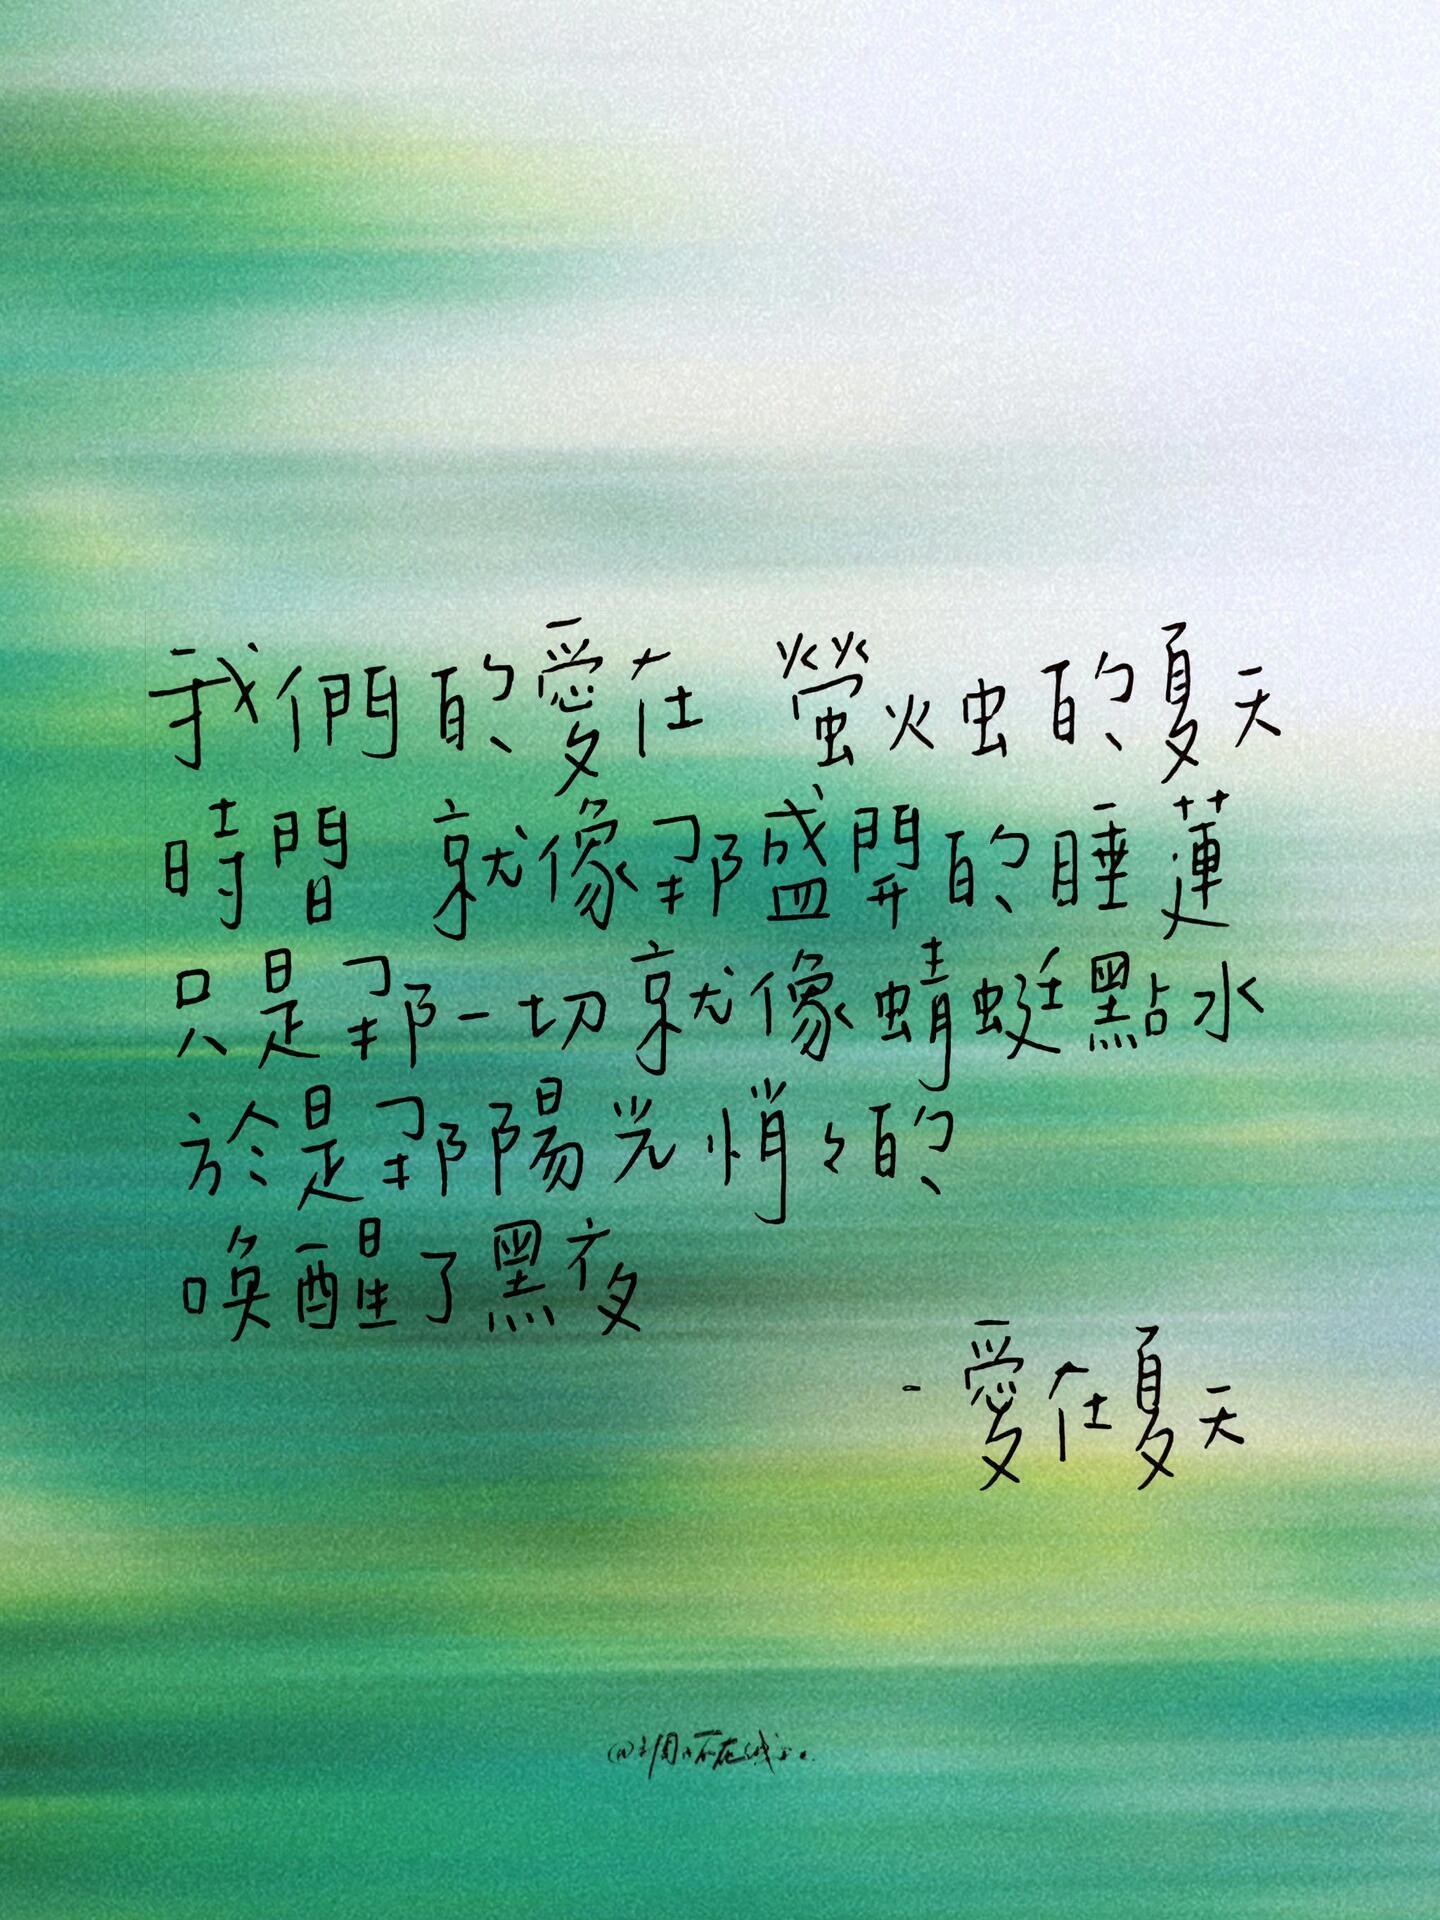 我們的愛在 螢火虫的夏天
時間 就像那盛開的睡蓮
只是那一切就像蜻蜓點水
於是那陽光悄々的
喚醒了黑夜
- 愛在夏天